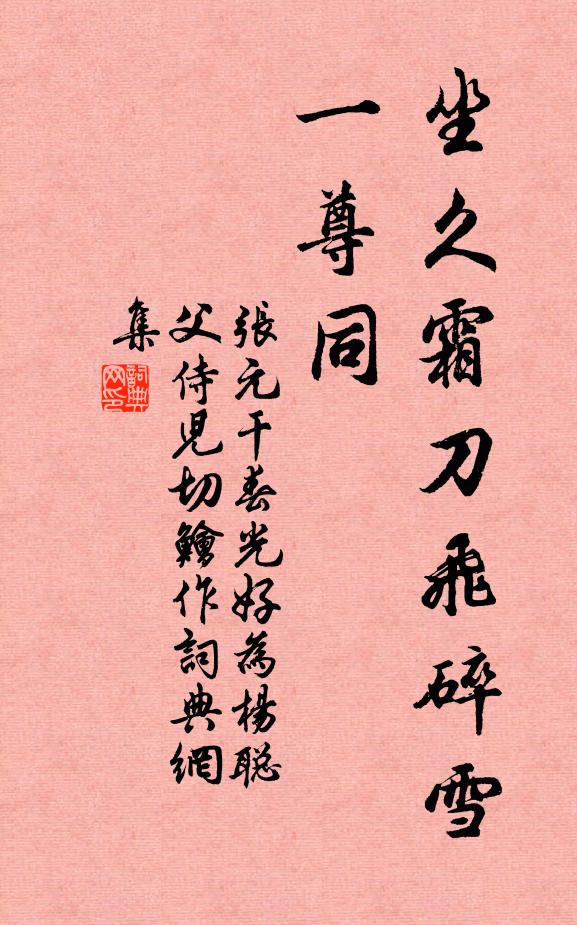 坐久霜刀飛碎雪
一尊同
張元干春光好為楊聡
父侍児切鱠作詞典網
集
詞典
网印